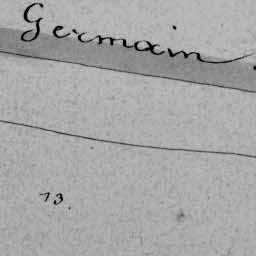 Germain.
13.